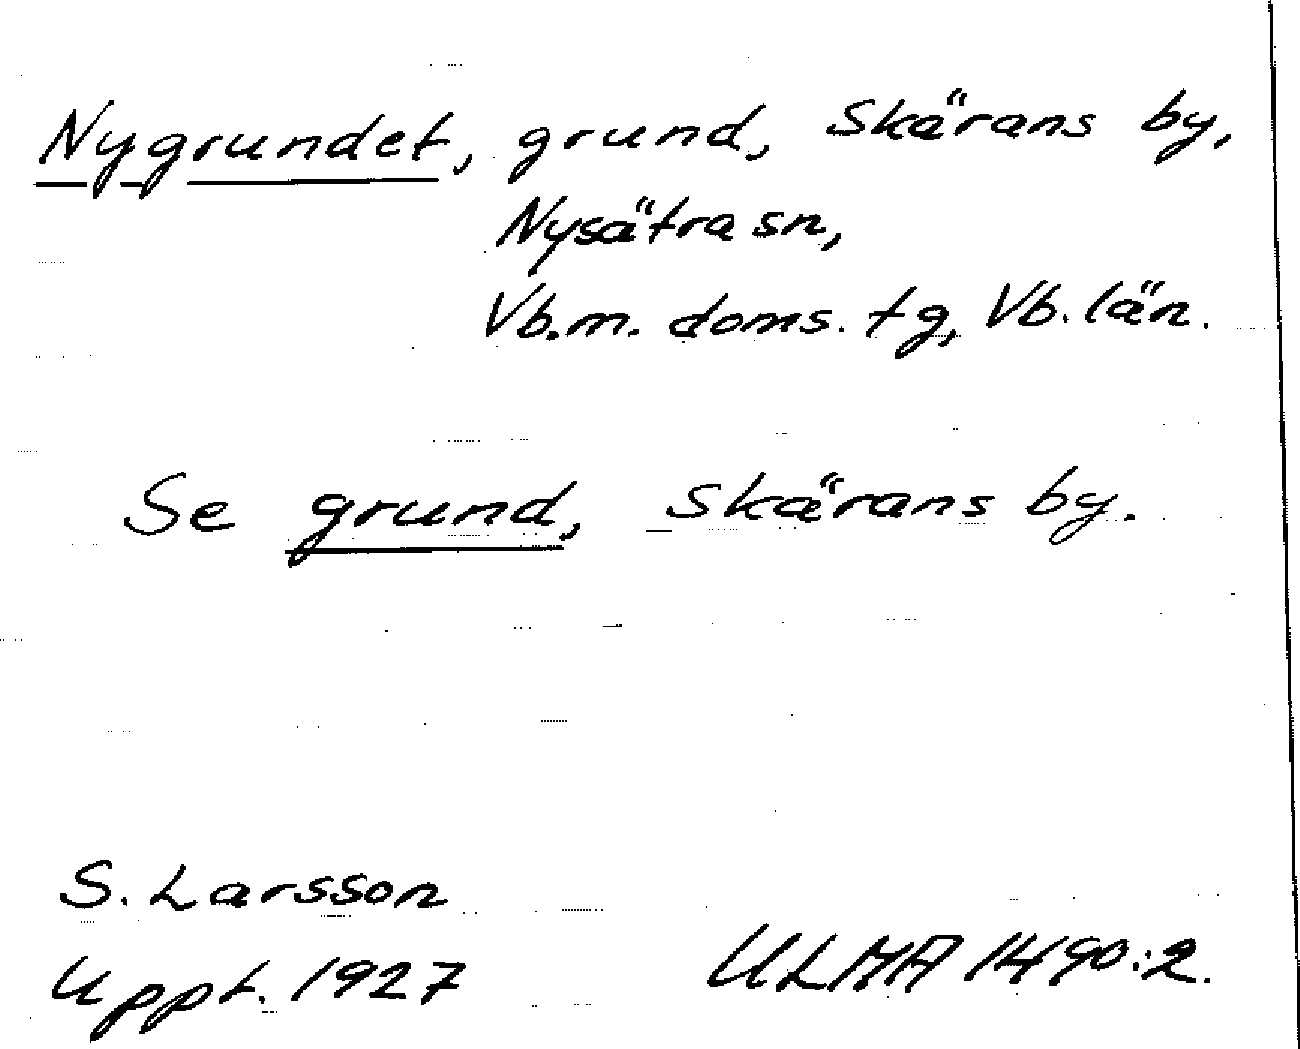 Nygrundet, grund, Skärans by,
Nysätra sn,
Vb.m. doms. tg, Vb. län.
Se grund, Skärans by.
S. Larsson
Uppt. 1927
ULMA 1490:2.